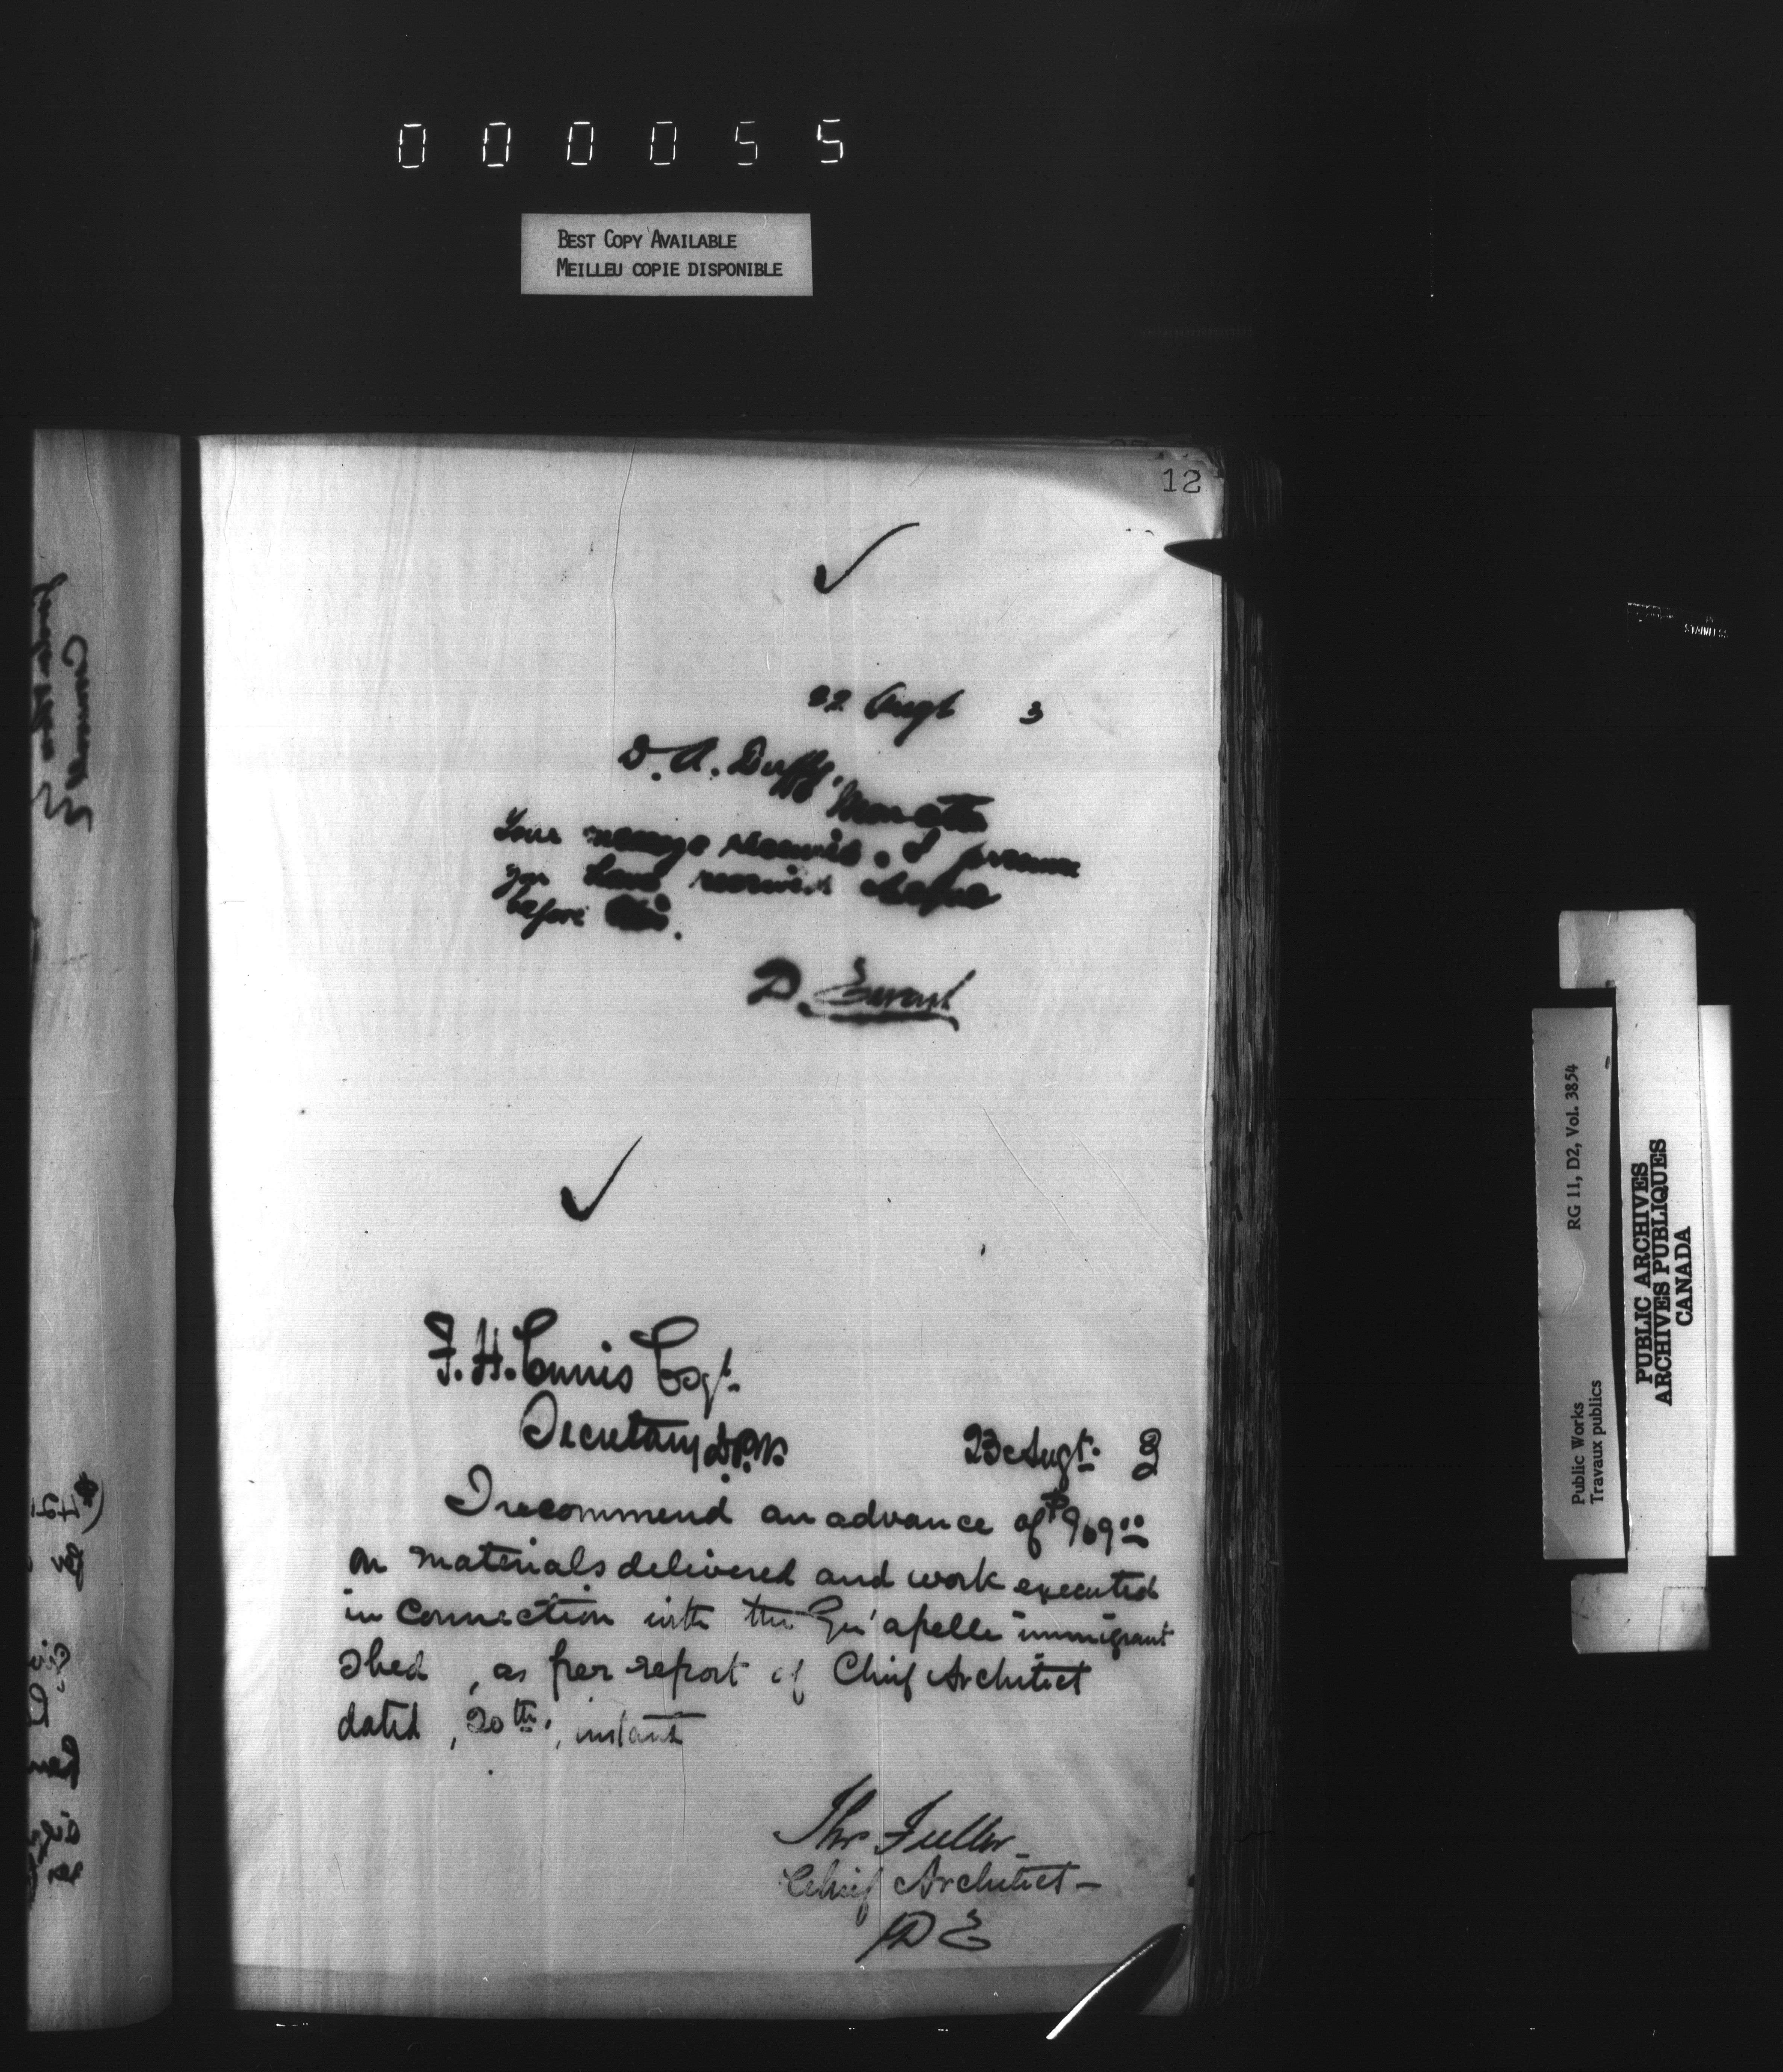 000055
BEST COPY AVAILABLE
MEILLEU COPIE DISPONIBLE
12
22 Augt 3
D. A. Duffy,
Moncton
Your message received. I presume
you have received
before this.
D. Ewart
F. H. Ennis Esqr.
Secretary D.P.W.
23 Augt. 3
I recommend an advance of $969.00
on materials delivered and work executed
in connection with the Qu'apelle immigrant
shed, as per report of Chief Architect
dated, 20th, instant
Thos Fuller
Chief Architect
D E
RG 11, D2, Vol. 3854
Public Works
Travaux publics
PUBLIC ARCHIVES
ARCHIVES PUBLIQUES
CANADA